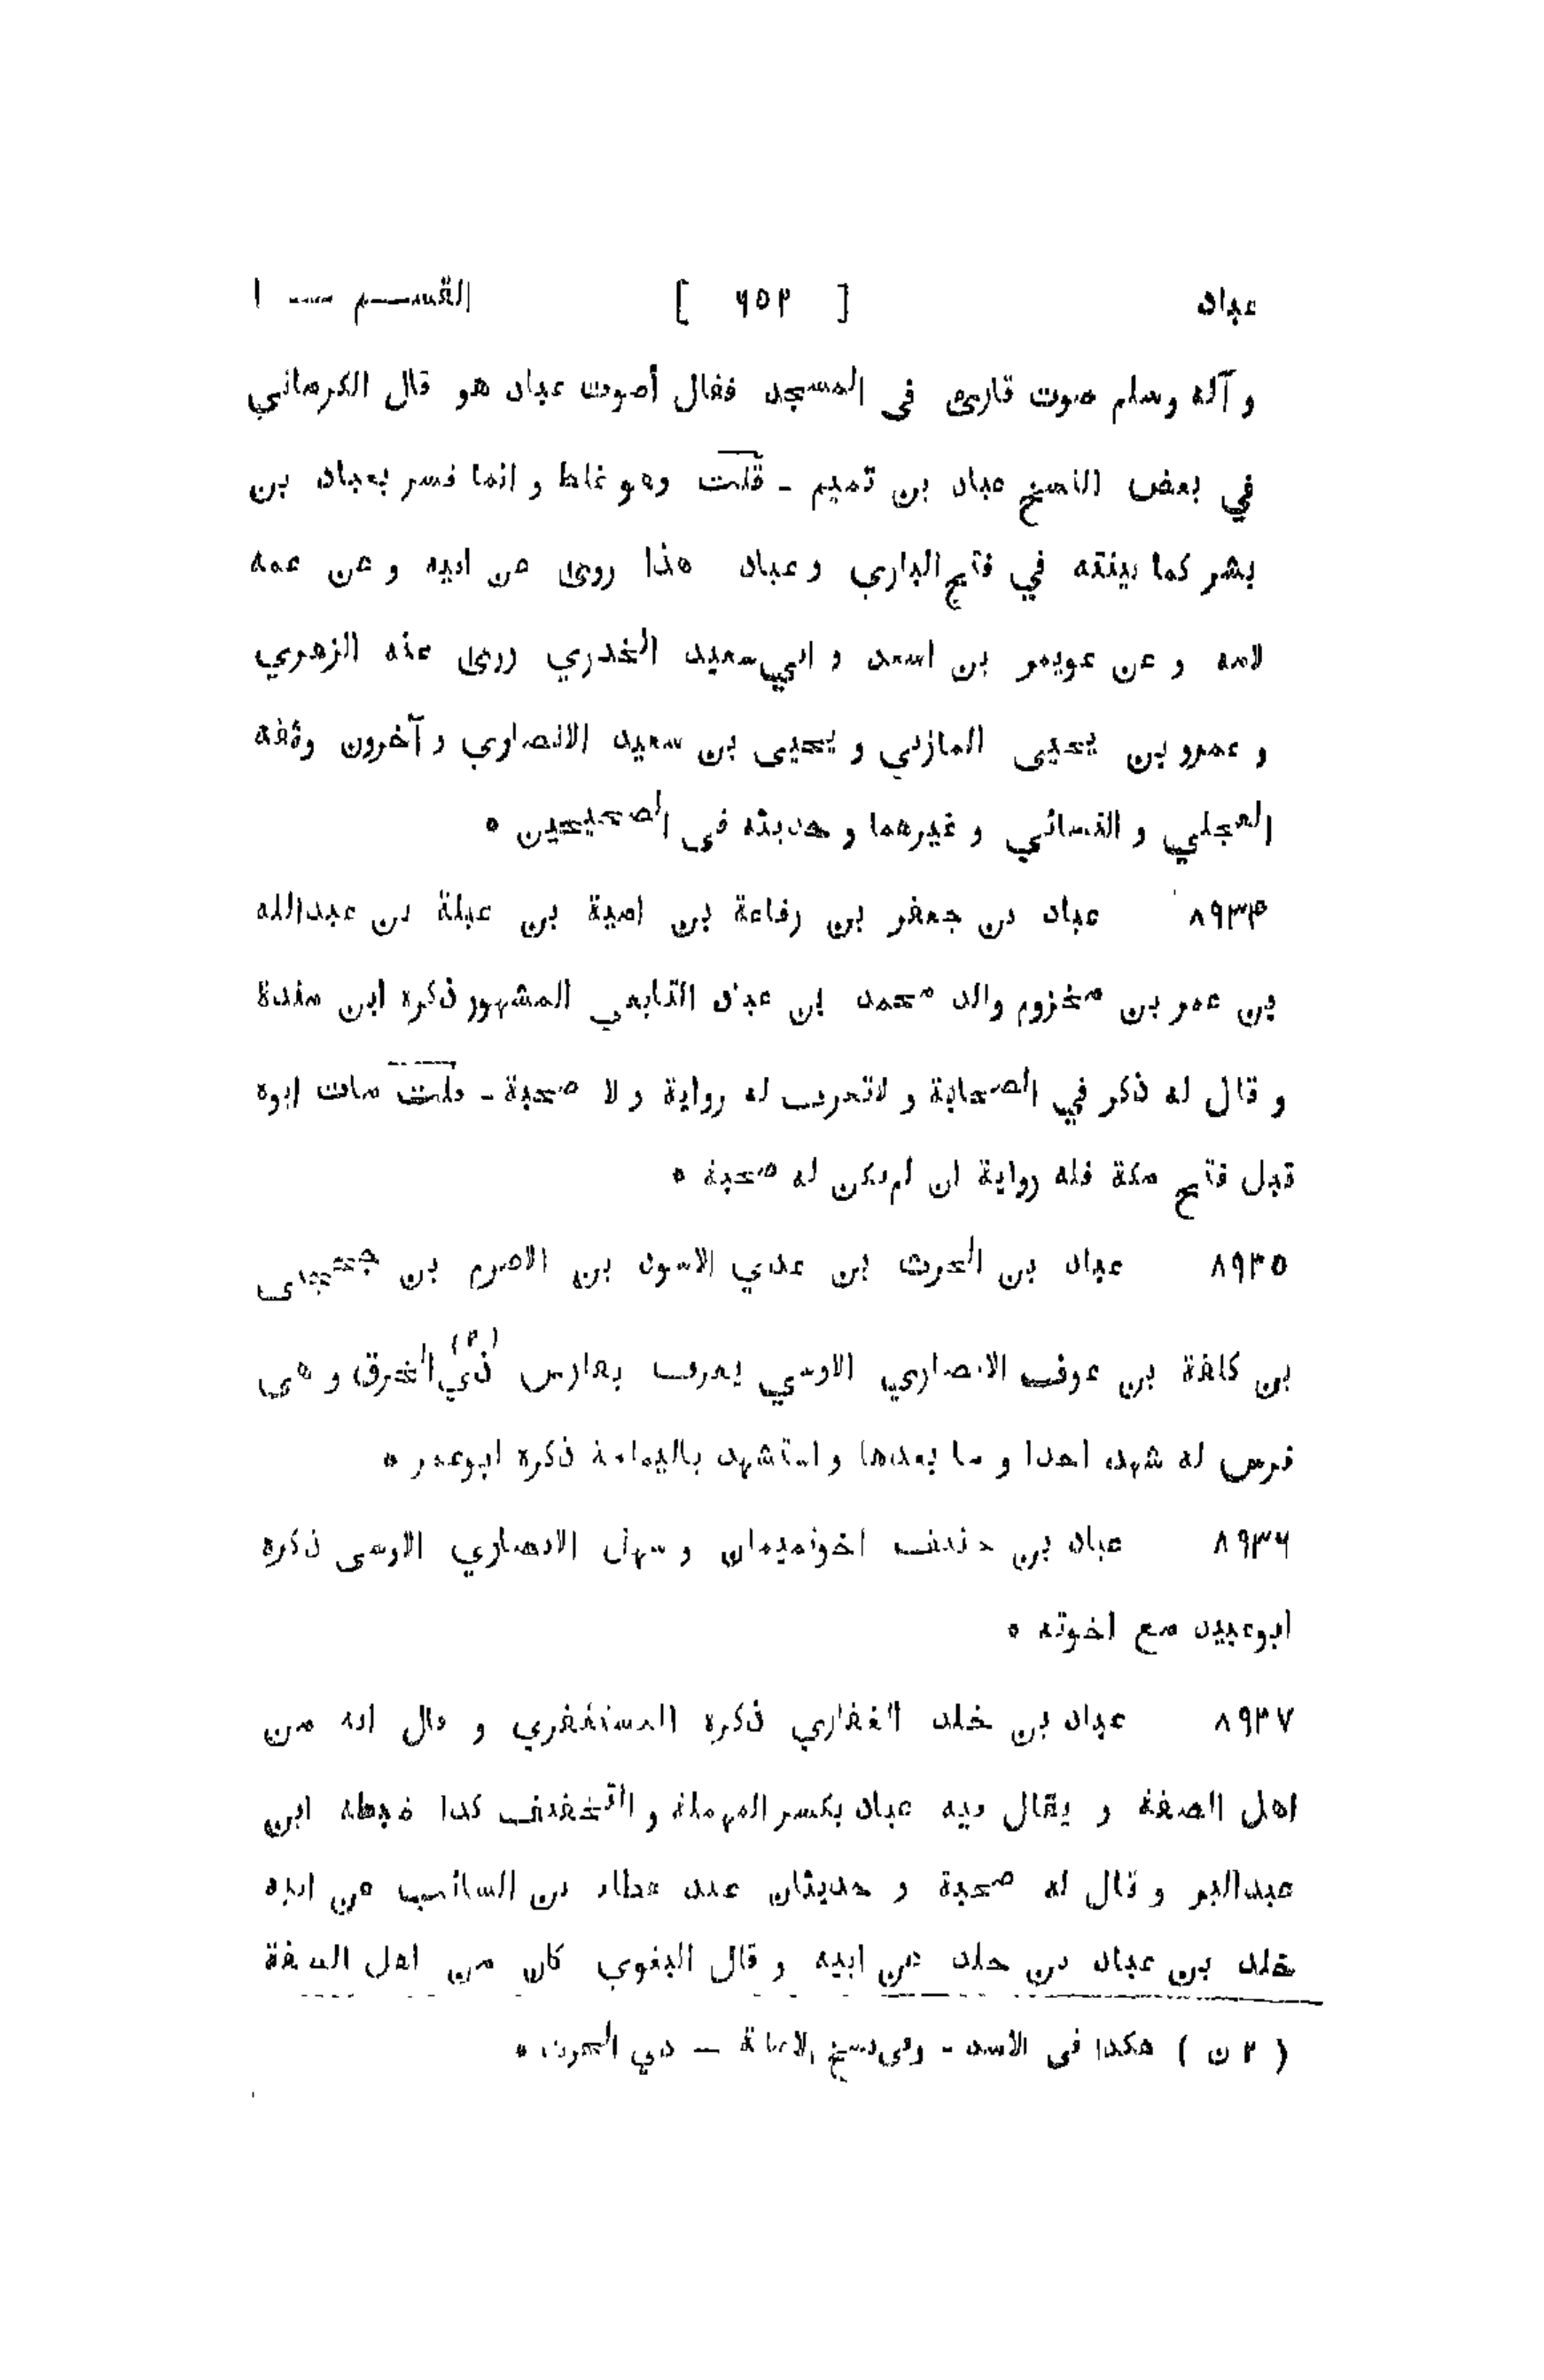 عباد [ ٦٥٣ ] القسم — ١
و آله وسلم صوت قارئ فى المسجد فقال أصوت عباد هو قال الكرماني
في بعض النسخ عباد بن تميم - قلت وهو غلط و انما فسر بعباد بن
بشر كما بينته في فتح الباري و عباد هذا روى عن ابيه و عن عمه
لامه و عن عويمر بن اسعد و ابي سعيد الخدري روى عنه الزهري
و عمرو بن يحيى المازني و يحيى بن سعيد الانصاري و آخرون وثقه
العجلي و النسائي و غيرهما و حديثه فى الصحيحين *
٨٩٣٤ عباد بن جعفر بن رفاعة بن امية بن عبلة بن عبدالله
بن عمر بن مخزوم والد محمد بن عباد التابعي المشهور ذكره ابن مندة
و قال له ذكر في الصحابة و لاتعرف له رواية و لا صحبة - قلت مات ابوه
قبل فتح مكة فله رواية ان لم يكن له صحبة *
٨٩٣٥ عباد بن الحرث بن عدي الاسود بن الاصرم بن جحجبى
بن كلفة بن عوف الانصاري الاوسي يعرف بفارس ذي الخرق (٢) و هى
فرس له شهد احدا و ما بعدها و استشهد باليمامة ذكره ابوعمر *
٨٩٣٦ عباد بن حنيف اخوعثمان و سهل الانصاري الاوسى ذكره
ابوعبيد مع اخوته *
٨٩٣٧ عباد بن خلد الغفاري ذكره المستغفري و قال انه من
اهل الصفة و يقال فيه عباد بكسر المهملة و التخفيف كذا ضبطه ابن
عبدالبر و قال له صحبة و حديثان عند عطاء بن السائب عن ابيه
خلد بن عباد بن خلد عن ابيه و قال البغوي كان من اهل الصفة
( ٢ ن ) هكذا فى الاسد - وفى نسخ الاصابة — ذي الحرث *